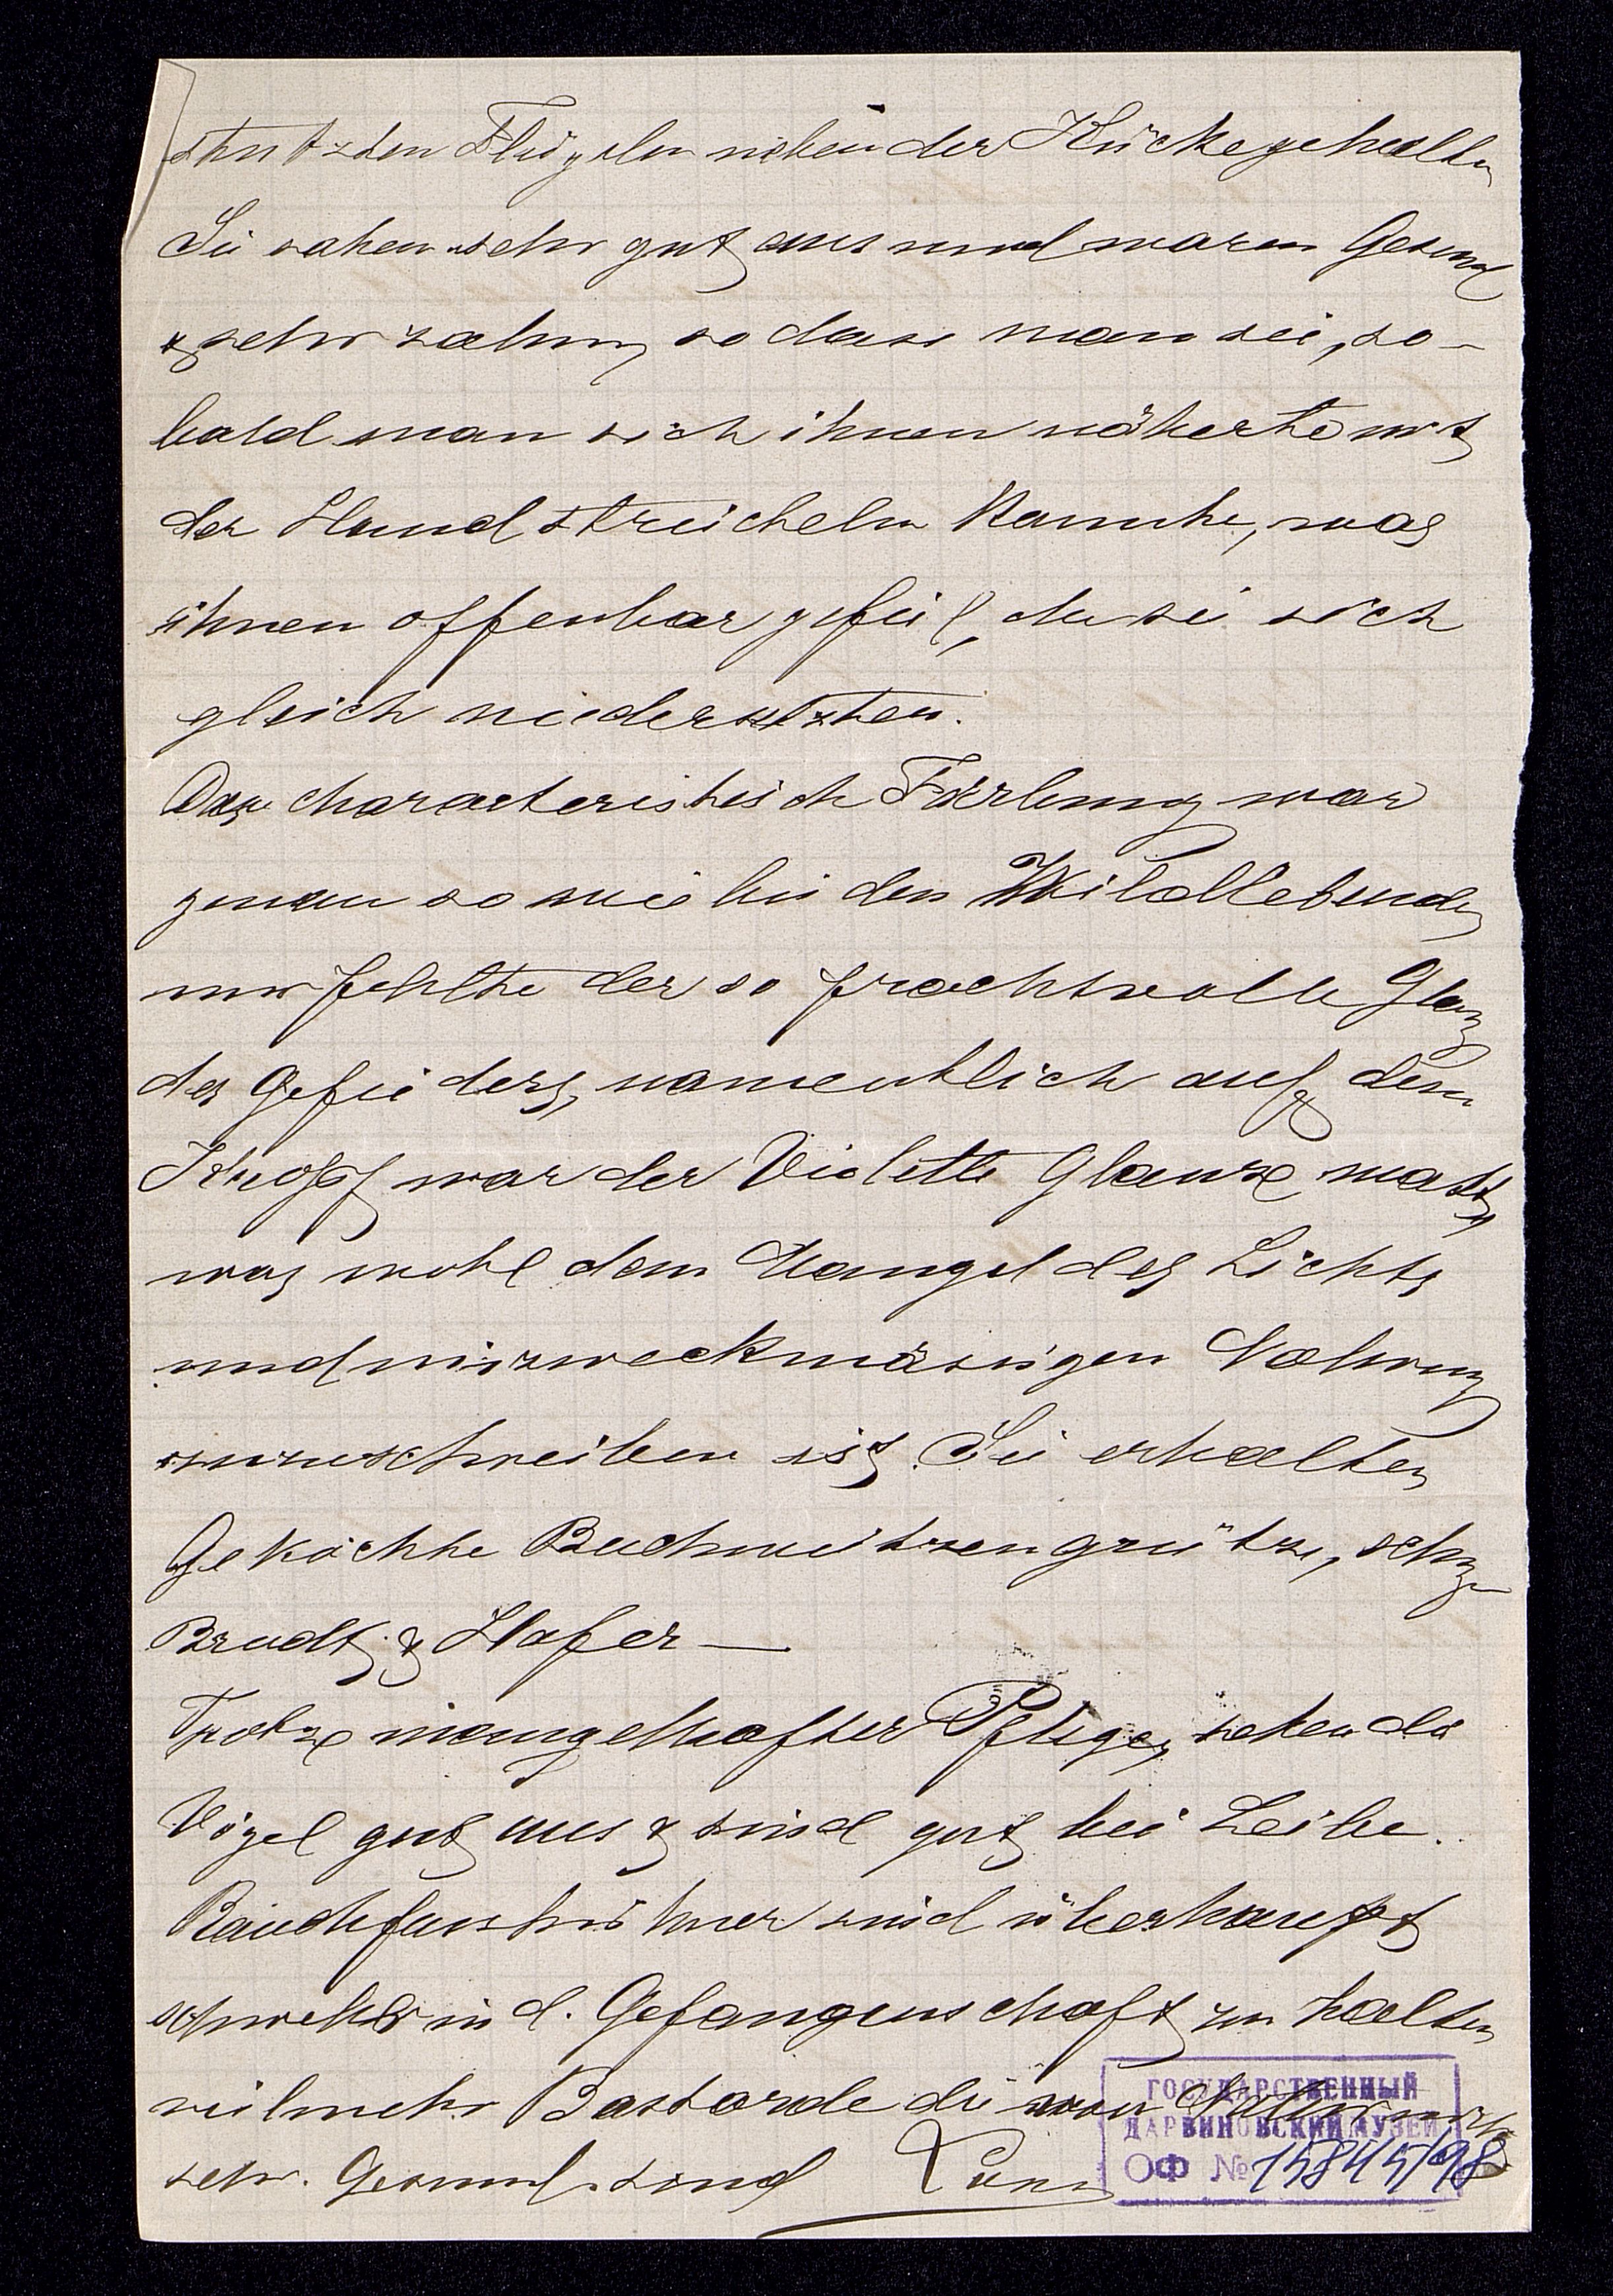 stutzten Flügeln neben der Küche gehalten
Sie sahen sehr gut aus und waren Gesund
& sehr zahm, so dass man sei, so-
bald man sich ihnen näherte mit
der Hand streicheln Kannte, was
ihnen offenbar gefiel, da sie sich
gleich niedersetzten.
Das characteristisch Färbung war
genau so wie bei den Wildlebenden
nur fehlte der so prachtvolle Glanz
des Gefieders, namentlich auf dem
Kropf war der Violette Glanz matt,
was wohl dem Mangel des Lichts
und unzweckmäsigen Nahrung
zuzuschreiben ist. Sie erhalten
Gekochte Buchweitzengrütze,
Brodt & Hafer —
Trotz mangelhafter Pflege, sehen die
Vögel gut aus & sind gut bei Leibe.
Rauchfusshühner sind überhaupt
schwehr in d. Gefangenschaft zu halten
vielmehr Bastarde die von Natur
sehr. Gesund sind
ГОСУДАРСТВЕННЫЙ
ДАРВИНОВСКИЙ МУЗЕЙ
ОФ № 15845/98